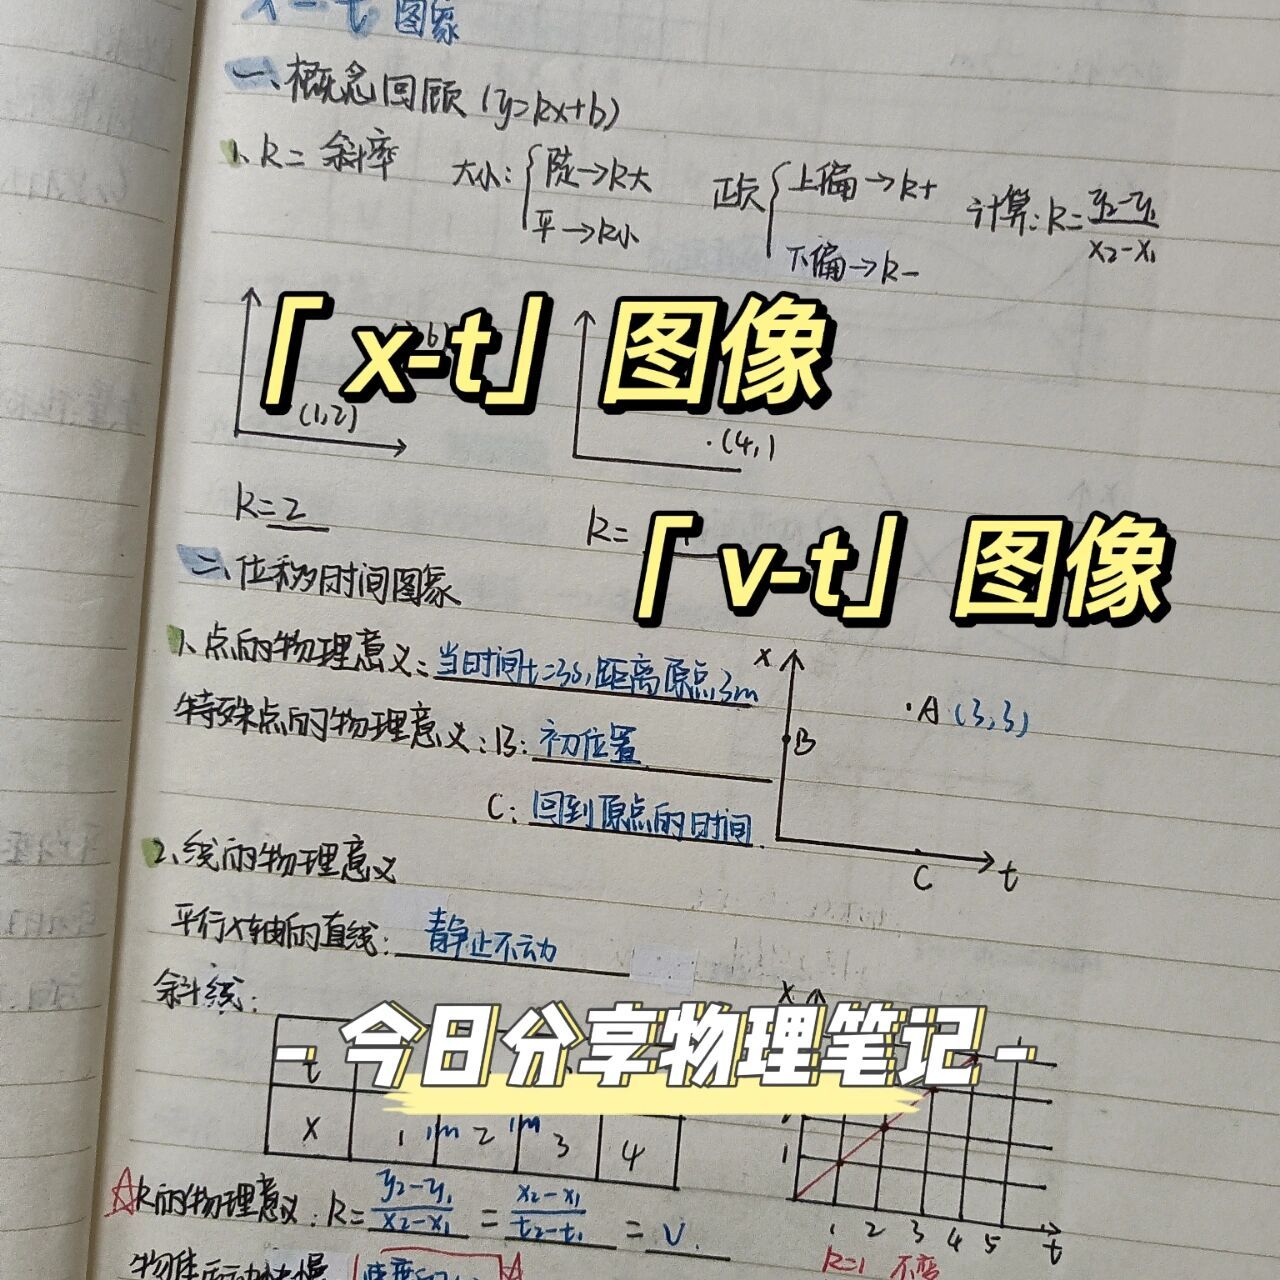 x-t 图象
一、概念回顾 (y=kx+b)
1、k= 斜率 大小: 陡→k大 平→k小 正负 上偏→k+ 下偏→k- 计算: k= y₂-y₁ / x₂-x₁
「x-t」图像
(1,2)
(4,1
k=2
k=
「v-t」图像
二、位移时间图象
1、点的物理意义: 当时间t=3s,距离原点3m
特殊点的物理意义: B: 初位置
C: 回到原点的时间
x
A (3,3)
B
C t
2、线的物理意义
平行x轴的直线: 静止不动
斜线:
- 今日分享物理笔记 -
t
x 1 1m 2 1m 3 4
x
1
1 2 3 4 5 t
k=1 不变
☆k的物理意义: k= y₂-y₁ / x₂-x₁ = x₂-x₁ / t₂-t₁ = v.